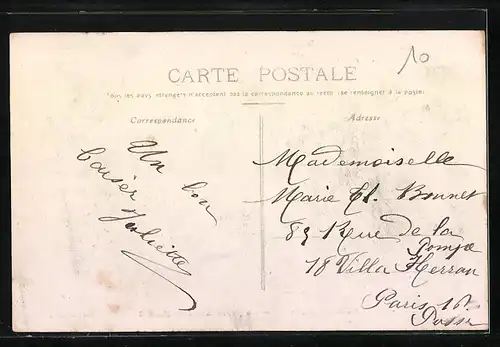 10
CARTE POSTALE
Tous les pays étrangers n'acceptent pas la correspondance au recto (se renseigner à la poste)
Correspondance
Adresse
Un bon
baiser
Juliette
Mademoiselle
Marie Bonnet
81 Rue de la
Pompe
18 Villa Herran
Paris 16